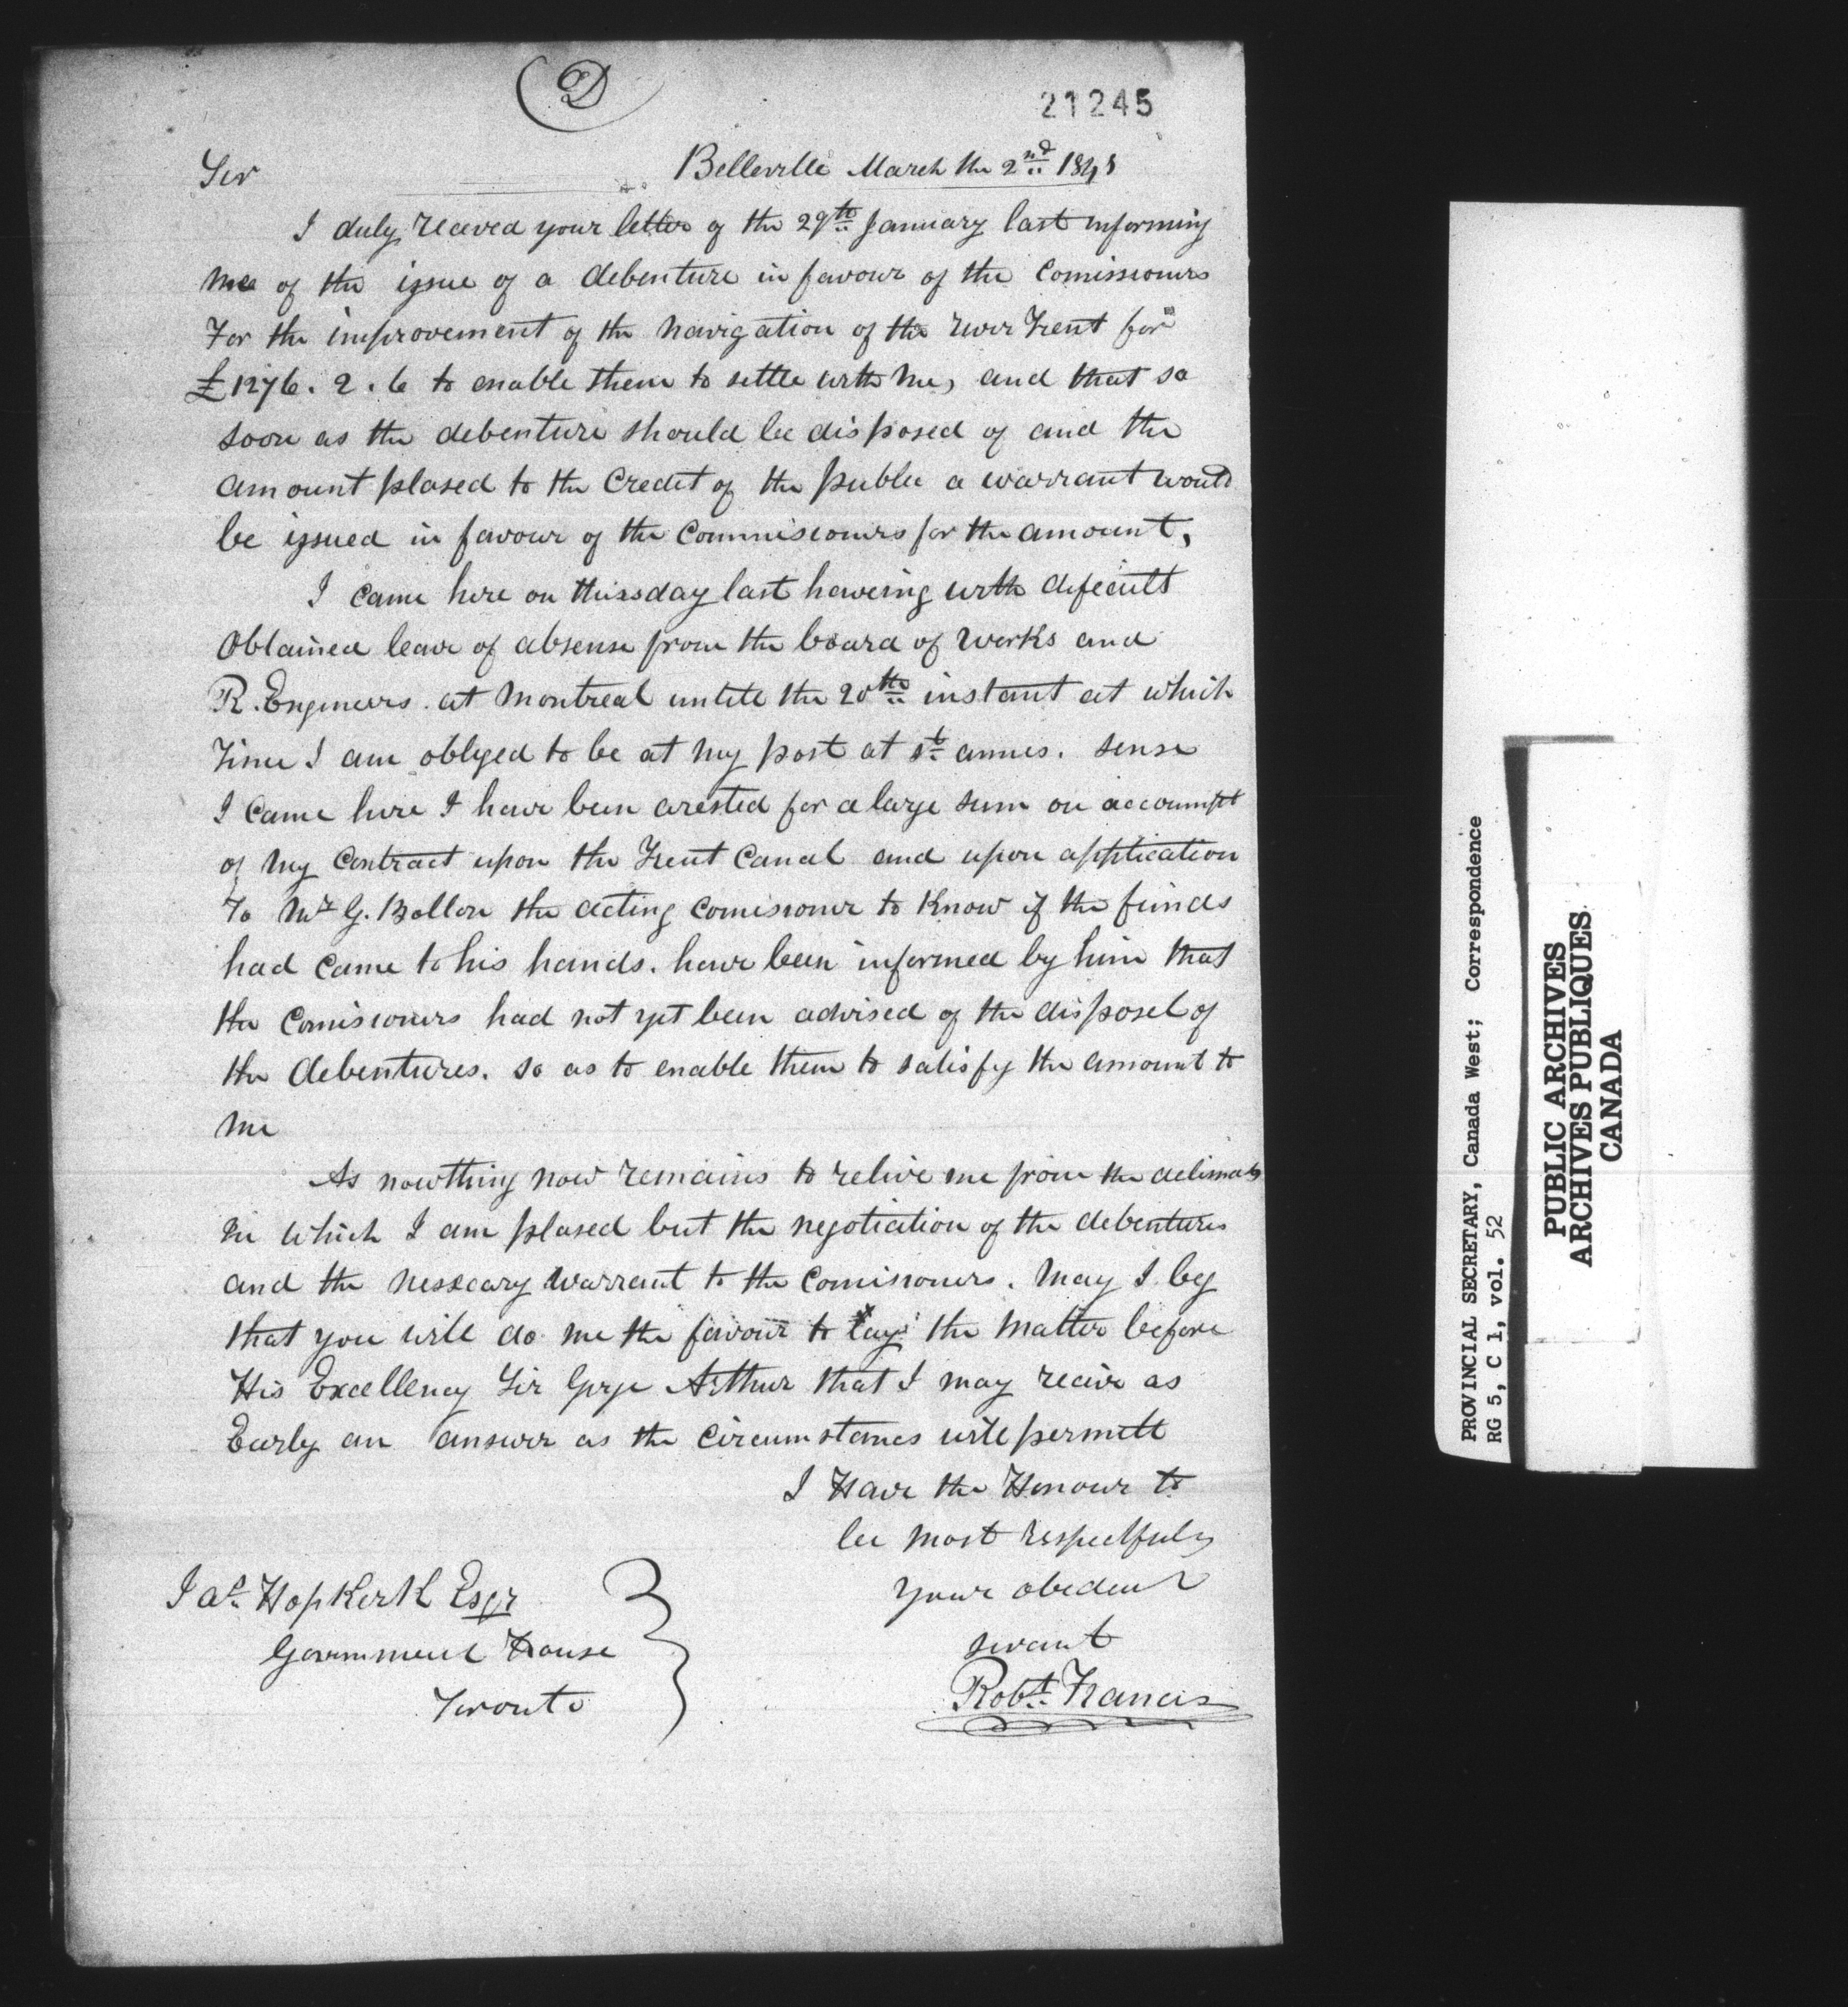 D
21245
Sir
Belleville March the 2nd 1841
I duly receved your letter of the 29th January last informing
me of the issue of a debenture in favour of the Comissioners
For the improvement of the navigation of the river Trent for
£1276.2.6 to enable them to settle with me, and that so
soon as the debenture should be disposed of and the
amount plased to the Credit of the public a warrant would
be issued in favour of the Commissioners for the amount,
I came here on thursday last haveing with deficult
Obtained leave of absense from the board of works and
R. Engineers. at Montreal untill the 20th instant at which
Time I am oblyed to be at my post at st annes. sense
I Came here I have been arested for a large sum on accoumpt
of my Contract upon the Trent Canal and upon application
To Mr G. Bollen the acting Comisioner to Know if the funds
had came to his hands. have been informed by him that
the Comisioners had not yet been advised of the disposel of
the debentures. so as to enable them to satisfy the amount to
me
As nowthing now remains to relive me from the delimas
In which I am plased but the negotiation of the debentures
and the nesscary warrant to the Comisioners. May I beg
that you will do me the favour to lay the matter before
His Excellency Sir Gorge Arthur that I may recive as
Early an answer as the Circumstances will permitt
I Have the Honour to
be most respectfuly
your obedient
servant
Robt. Francis
Jas. HopKirk Esqr
Government House
Toronto
PROVINCIAL SECRETARY, Canada West; Correspondence
RG 5, C 1, vol. 52
PUBLIC ARCHIVES
ARCHIVES PUBLIQUES
CANADA